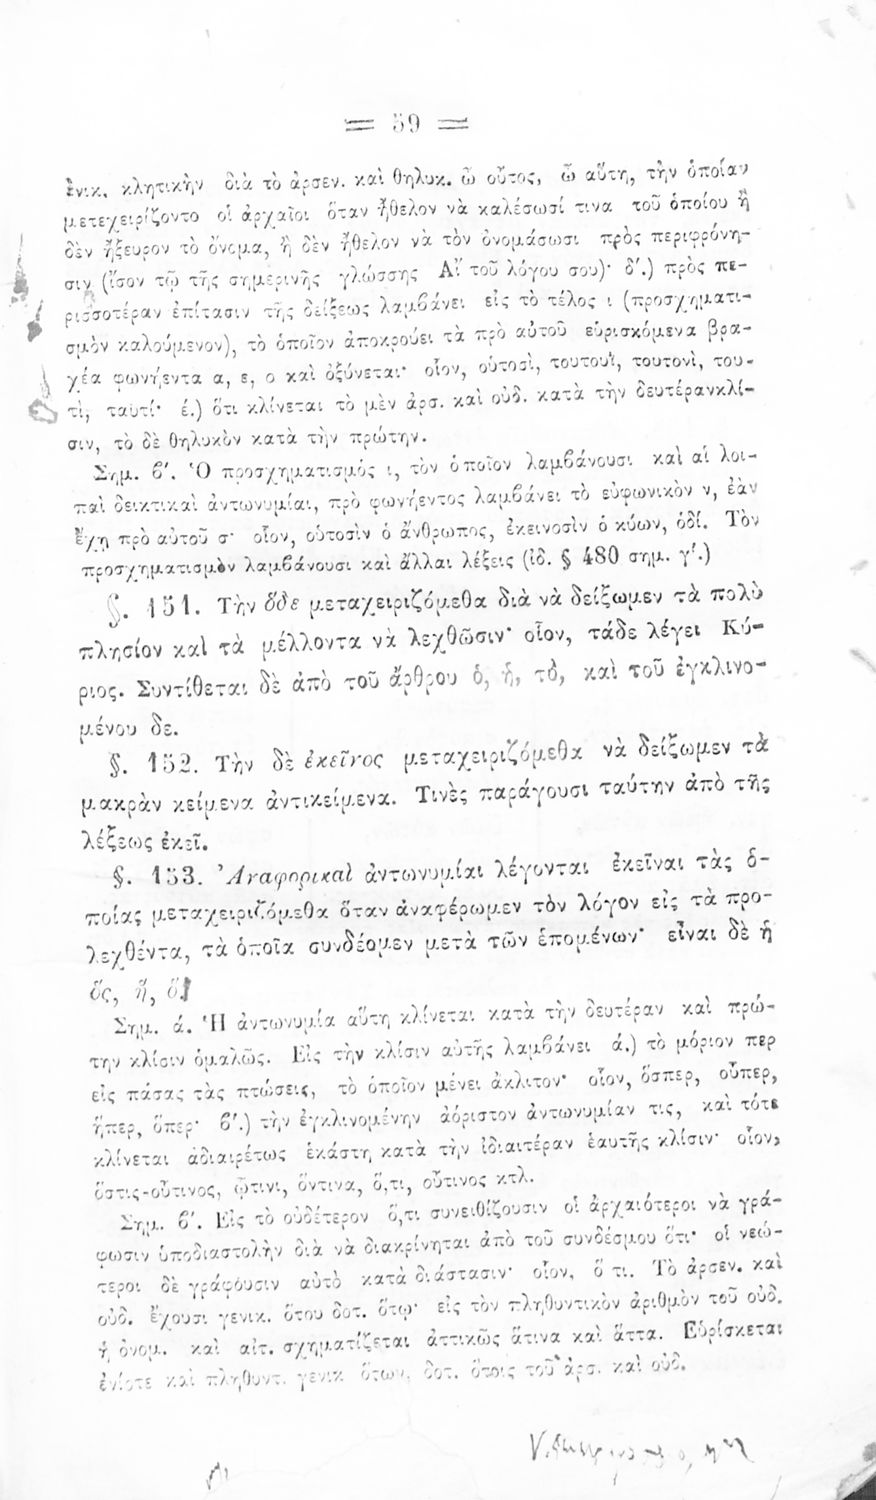 = 59 =
ἑνικ. κλητικὴν διὰ τὸ ἀρσεν. καὶ θηλυκ. ὦ οὗτος, ὦ αὕτη, τὴν ὁποίαν
μετεχειρίζοντο οἱ ἀρχαῖοι ὅταν ἤθελον νὰ καλέσωσί τινα τοῦ ὁποίου ἢ
δὲν ἤξευρον τὸ ὄνομα, ἢ δὲν ἤθελον νὰ τὸν ὀνομάσωσι πρὸς περιφρόνη-
σιν (ἴσον τῷ τῆς σημερινῆς γλώσσης Αἴ τοῦ λόγου σου)· δ΄.) πρὸς πε-
ρισσοτέραν ἐπίτασιν τῆς δείξεως λαμβάνει εἰς τὸ τέλος ι (προσχηματι-
σμὸν καλούμενον), τὸ ὁποῖον ἀποκρούει τὰ πρὸ αὐτοῦ εὑρισκόμενα βρα-
χέα φωνήεντα α, ε, ο καὶ ὀξύνεται· οἷον, οὑτοσὶ, τουτουῒ, τουτονὶ, του-
τὶ, ταυτί· έ.) ὅτι κλίνεται τὸ μὲν ἀρσ. καὶ οὐδ. κατὰ τὴν δευτέρανκλί-
σιν, τὸ δὲ θηλυκὸν κατὰ τὴν πρώτην.
Σημ. β΄. Ὁ προσχηματισμός ι, τὸν ὁποῖον λαμβάνουσι καὶ αἱ λοι-
παὶ δεικτικαὶ ἀντωνυμίαι, πρὸ φωνήεντος λαμβάνει τὸ εὐφωνικὸν ν, ἐὰν
ἔχῃ πρὸ αὐτοῦ σ· οἷον, οὑτοσὶν ὁ ἄνθρωπος, ἐκεινοσὶν ὁ κύων, ὁδί. Τὸν
προσχηματισμὸν λαμβάνουσι καὶ ἄλλαι λέξεις (ἰδ. § 480 σημ. γ΄.)
§. 151. Τὴν ὅδε μεταχειριζόμεθα διὰ νὰ δείξωμεν τὰ πολὺ
πλησίον καὶ τὰ μέλλοντα νὰ λεχθῶσιν· οἷον, τάδε λέγει Κύ-
ριος. Συντίθεται δὲ ἀπὸ τοῦ ἄρθρου ὁ, ἡ, τὸ, καὶ τοῦ ἐγκλινο-
μένου δε.
§. 152. Τὴν δὲ ἐκεῖνος μεταχειριζόμεθα νὰ δείξωμεν τὰ
μακρὰν κείμενα ἀντικείμενα. Τινὲς παράγουσι ταύτην ἀπὸ τῆς
λέξεως ἐκεῖ.
§. 153. Ἀναφορικαὶ ἀντωνυμίαι λέγονται ἐκεῖναι τὰς ὁ-
ποίας μεταχειριζόμεθα ὅταν ἀναφέρωμεν τὸν λόγον εἰς τὰ προ-
λεχθέντα, τὰ ὁποῖα συνδέομεν μετὰ τῶν ἑπομένων· εἶναι δὲ ἡ
ὅς, ἥ, ὅ.
Σημ. ά. Ἡ ἀντωνυμία αὕτη κλίνεται κατὰ τὴν δευτέραν καὶ πρώ-
την κλίσιν ὁμαλῶς. Εἰς τὴν κλίσιν αὐτῆς λαμβάνει ά.) τὸ μόριον περ
εἰς πάσας τὰς πτώσεις, τὸ ὁποῖον μένει ἄκλιτον· οἷον, ὅσπερ, οὗπερ,
ἥπερ, ὅπερ· β΄.) τὴν ἐγκλινομένην ἀόριστον ἀντωνυμίαν τις, καὶ τότε
κλίνεται ἀδιαιρέτως ἑκάστη κατὰ τὴν ἰδιαιτέραν ἑαυτῆς κλίσιν· οἷον,
ὅστις-οὕτινος, ᾧτινι, ὅντινα, ὅ,τι, οὗτινος κτλ.
Σημ. β΄. Εἰς τὸ οὐδέτερον ὅ,τι συνειθίζουσιν οἱ ἀρχαιότεροι νὰ γρά-
φωσιν ὑποδιαστολὴν διὰ νὰ διακρίνηται ἀπὸ τοῦ συνδέσμου ὅτι· οἱ νεώ-
τεροι δὲ γράφουσιν αὐτὸ κατὰ διάστασιν· οἷον, ὅ τι. Τὸ ἀρσεν. καὶ
οὐδ. ἔχουσι γενικ. ὅτου δοτ. ὅτῳ· εἰς τὸν πληθυντικὸν ἀριθμὸν τοῦ οὐδ.
ἡ ὀνομ. καὶ αἰτ. σχηματίζεται ἀττικῶς ἅτινα καὶ ἅττα. Εὑρίσκεται
ἐνίοτε καὶ πληθυντ. γενικ ὅτων, δοτ. ὅτοις τοῦ ἀρσ. καὶ οὐδ.